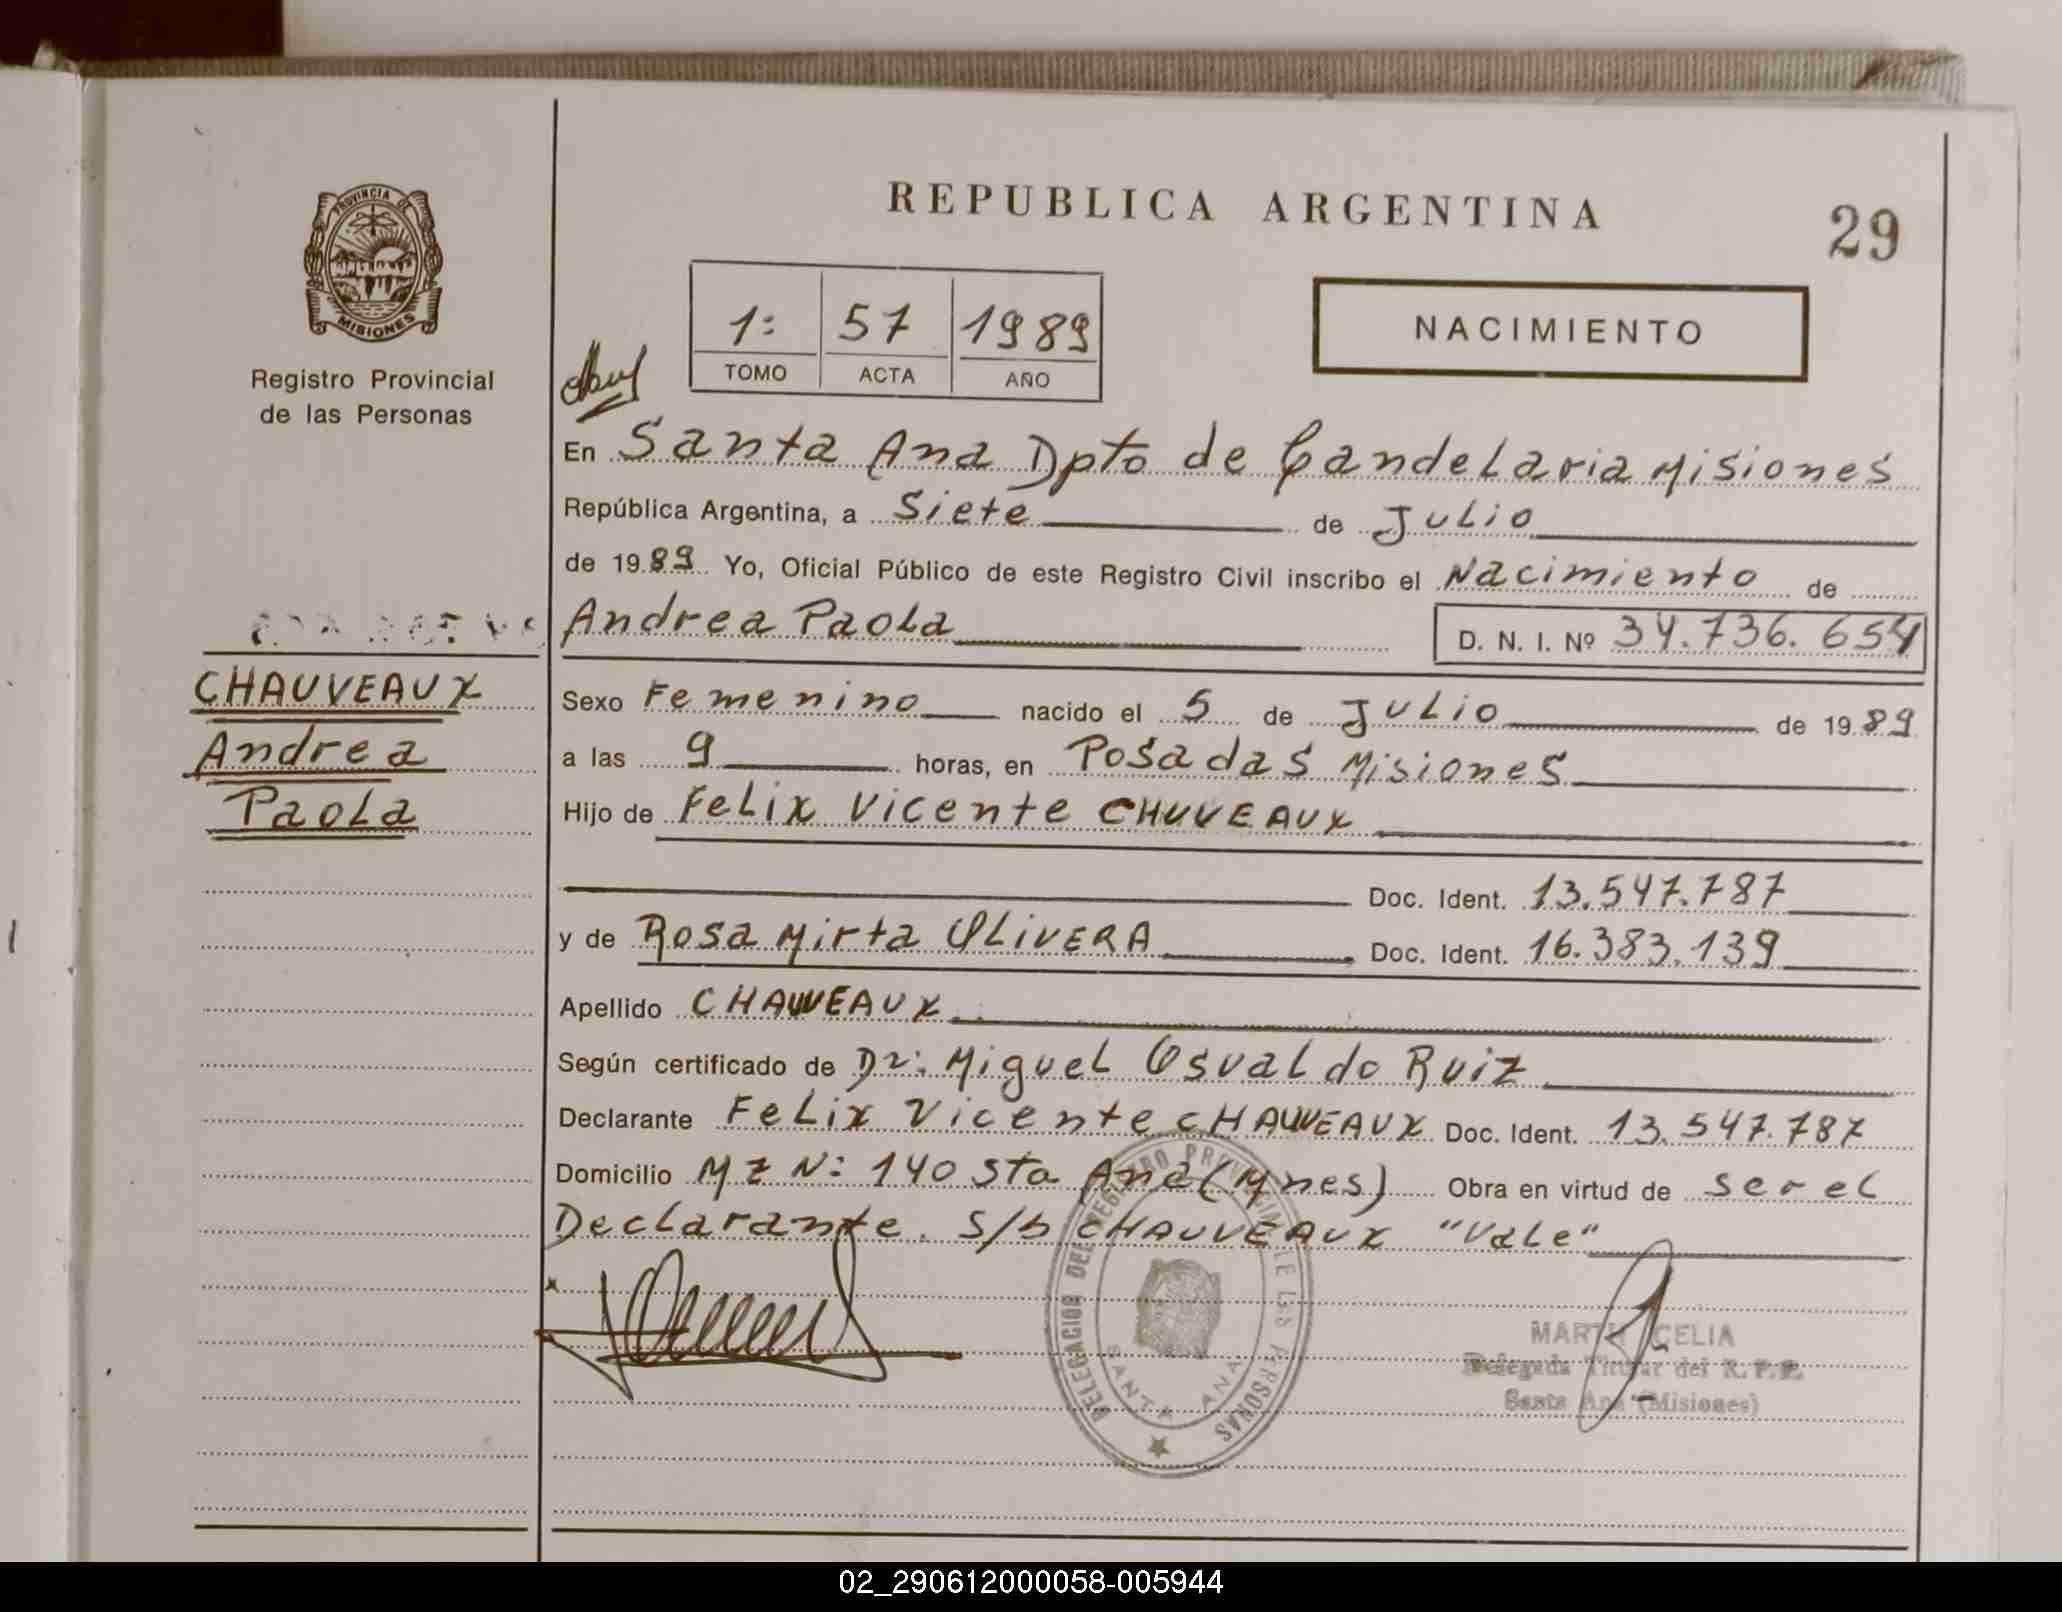 PROVINCIA DE
MISIONES
Registro Provincial
de las Personas
REPUBLICA ARGENTINA
29
1: 57 1989
TOMO ACTA AÑO
NACIMIENTO
En Santa Ana Dpto de Candelaria Misiones
República Argentina, a Siete de Julio
de 1989 Yo, Oficial Público de este Registro Civil inscribo el Nacimiento de
Andrea Paola D. N. I. Nº 34.736.654
CHAUVEAUX
Andrea
Paola
Sexo Femenino nacido el 5 de Julio de 1989
a las 9 horas, en Posadas Misiones
Hijo de Felix Vicente CHUVEAUX
Doc. Ident. 13.547.787
y de Rosa Mirta OLIVERA Doc. Ident. 16.383.139
Apellido CHAUVEAUX
Según certificado de Dr: Miguel Osvaldo Ruiz
Declarante Felix Vicente CHAUVEAUX Doc. Ident. 13.547.787
Domicilio Mz N: 140 Sta Ana (Mnes) Obra en virtud de ser el
Declarante. S/b CHAUVEAUX "Vale"
DELEGACION DEL REGISTRO PROVINCIAL DE LAS PERSONAS
SANTA ANA
CELIA
Delegada Titular del R. P. P.
Santa Ana (Misiones)
02_290612000058-005944